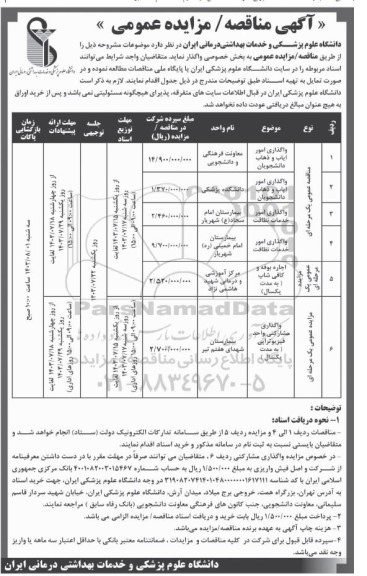 « آگهی مناقصه/ مزایده عمومی »
دانشگاه علوم پزشکی و خدمات بهداشتی درمانی ایران در نظر دارد موضوعات مشروحه ذیل را
از طریق مناقصه/مزایده عمومی به بخش خصوصی واگذار نماید. متقاضیان واجد شرایط می توانند
اسناد مربوطه را در سایت دانشگاه علوم پزشکی ایران یا پایگاه ملی مناقصات مطالعه نموده و در
صورت تمایل به تهیه اسناد طبق توضیحات مندرج در ذیل جدول اقدام نمایند. لازم به ذکر است
دانشگاه علوم پزشکی ایران در قبال اطلاعات سایت های متفرقه، پذیرای هیچگونه مسئولیتی نمی باشد و پس از خرید اوراق
به هیچ عنوان مبالغ دریافتی عودت داده نخواهد شد.
ردیف نوع موضوع نام واحد مبلغ سپرده شرکت در مناقصه / مزایده (ریال) مهلت توزیع اسناد جلسه توجیهی مهلت ارائه پیشنهادات زمان بازگشایی پاکات
مناقصه عمومی یک مرحله ای
۱ واگذاری امور ایاب و ذهاب دانشجویان معاونت فرهنگی و دانشجویی ۱۴/۹۰۰/۰۰۰/۰۰۰
۲ واگذاری امور ایاب و ذهاب دانشجویان دانشکده پزشکی ۱/۳۷۰/۰۰۰/۰۰۰
۳ واگذاری امور خدمات نظافت بیمارستان امام سجاد(ع) شهریار ۲/۴۶۰/۰۰۰/۰۰۰
۴ واگذاری امور خدمات نظافت بیمارستان امام خمینی (ره) شهریار ۹/۷۰۰/۰۰۰/۰۰۰
۵ اجاره بوفه و کافی شاپ ( به مدت یکسال) مرکز آموزشی و درمانی شهید هاشمی نژاد ۲/۵۲۰/۰۰۰/۰۰۰
۶ مزایده عمومی یک مرحله ای واگذاری مشارکتی واحد فیزیوتراپی ( به مدت یکسال) بیمارستان شهدای هفتم تیر ۲/۷۰۰/۰۰۰/۰۰۰
سه شنبه ۱۴۰۳/۰۸/۰۱ ساعت ۱۰:۰۰ صبح
ParsNamadData
۰۲۱-۸۸۳۴۹۶۷۰-۵
توضیحات :
۱- نحوه دریافت اسناد:
- مناقصات ردیف ۱ الی ۴ و مزایده ردیف ۵ از طریق سامانه تدارکات الکترونیک دولت (ستاد) انجام خواهد شد و
متقاضیان بایستی نسبت به ثبت نام در سامانه مذکور و خرید اسناد اقدام نمایند.
- در خصوص مزایده واگذاری مشارکتی ردیف ۶، متقاضیان می توانند صرفاً در مهلت مقرر با در دست داشتن معرفینامه
از شرکت و اصل فیش واریزی به مبلغ ۱/۵۰۰/۰۰۰ ریال به حساب شماره ۴۰۰۱۰۸۲۰۰۳۰۱۵۴۶۷ بانک مرکزی جمهوری
اسلامی ایران با کد شناسه در وجه دانشگاه علوم پزشکی ایران، جهت خرید اسناد
به آدرس تهران، بزرگراه همت، خروجی برج میلاد، میدان آرش، دانشگاه علوم پزشکی ایران، خیابان شهید سردار قاسم
سلیمانی، معاونت دانشجویی، جنب کانون های فرهنگی معاونت دانشجویی (بانک رفاه سابق ) مراجعه نمایند.
۲- پرداخت مبلغ ۱/۵۰۰/۰۰۰ ریال بابت خرید و دریافت اسناد مناقصه/ مزایده الزامی می باشد.
۳- هزینه چاپ آگهی به عهده برنده مناقصه/مزایده می باشد.
۴-سپرده قابل قبول برای شرکت در کلیه مناقصات و مزایدات ، ضمانتنامه معتبر بانکی با حداقل اعتبار سه ماهه یا واریز
وجه نقد می باشد.
دانشگاه علوم پزشکی و خدمات بهداشتی درمانی ایران